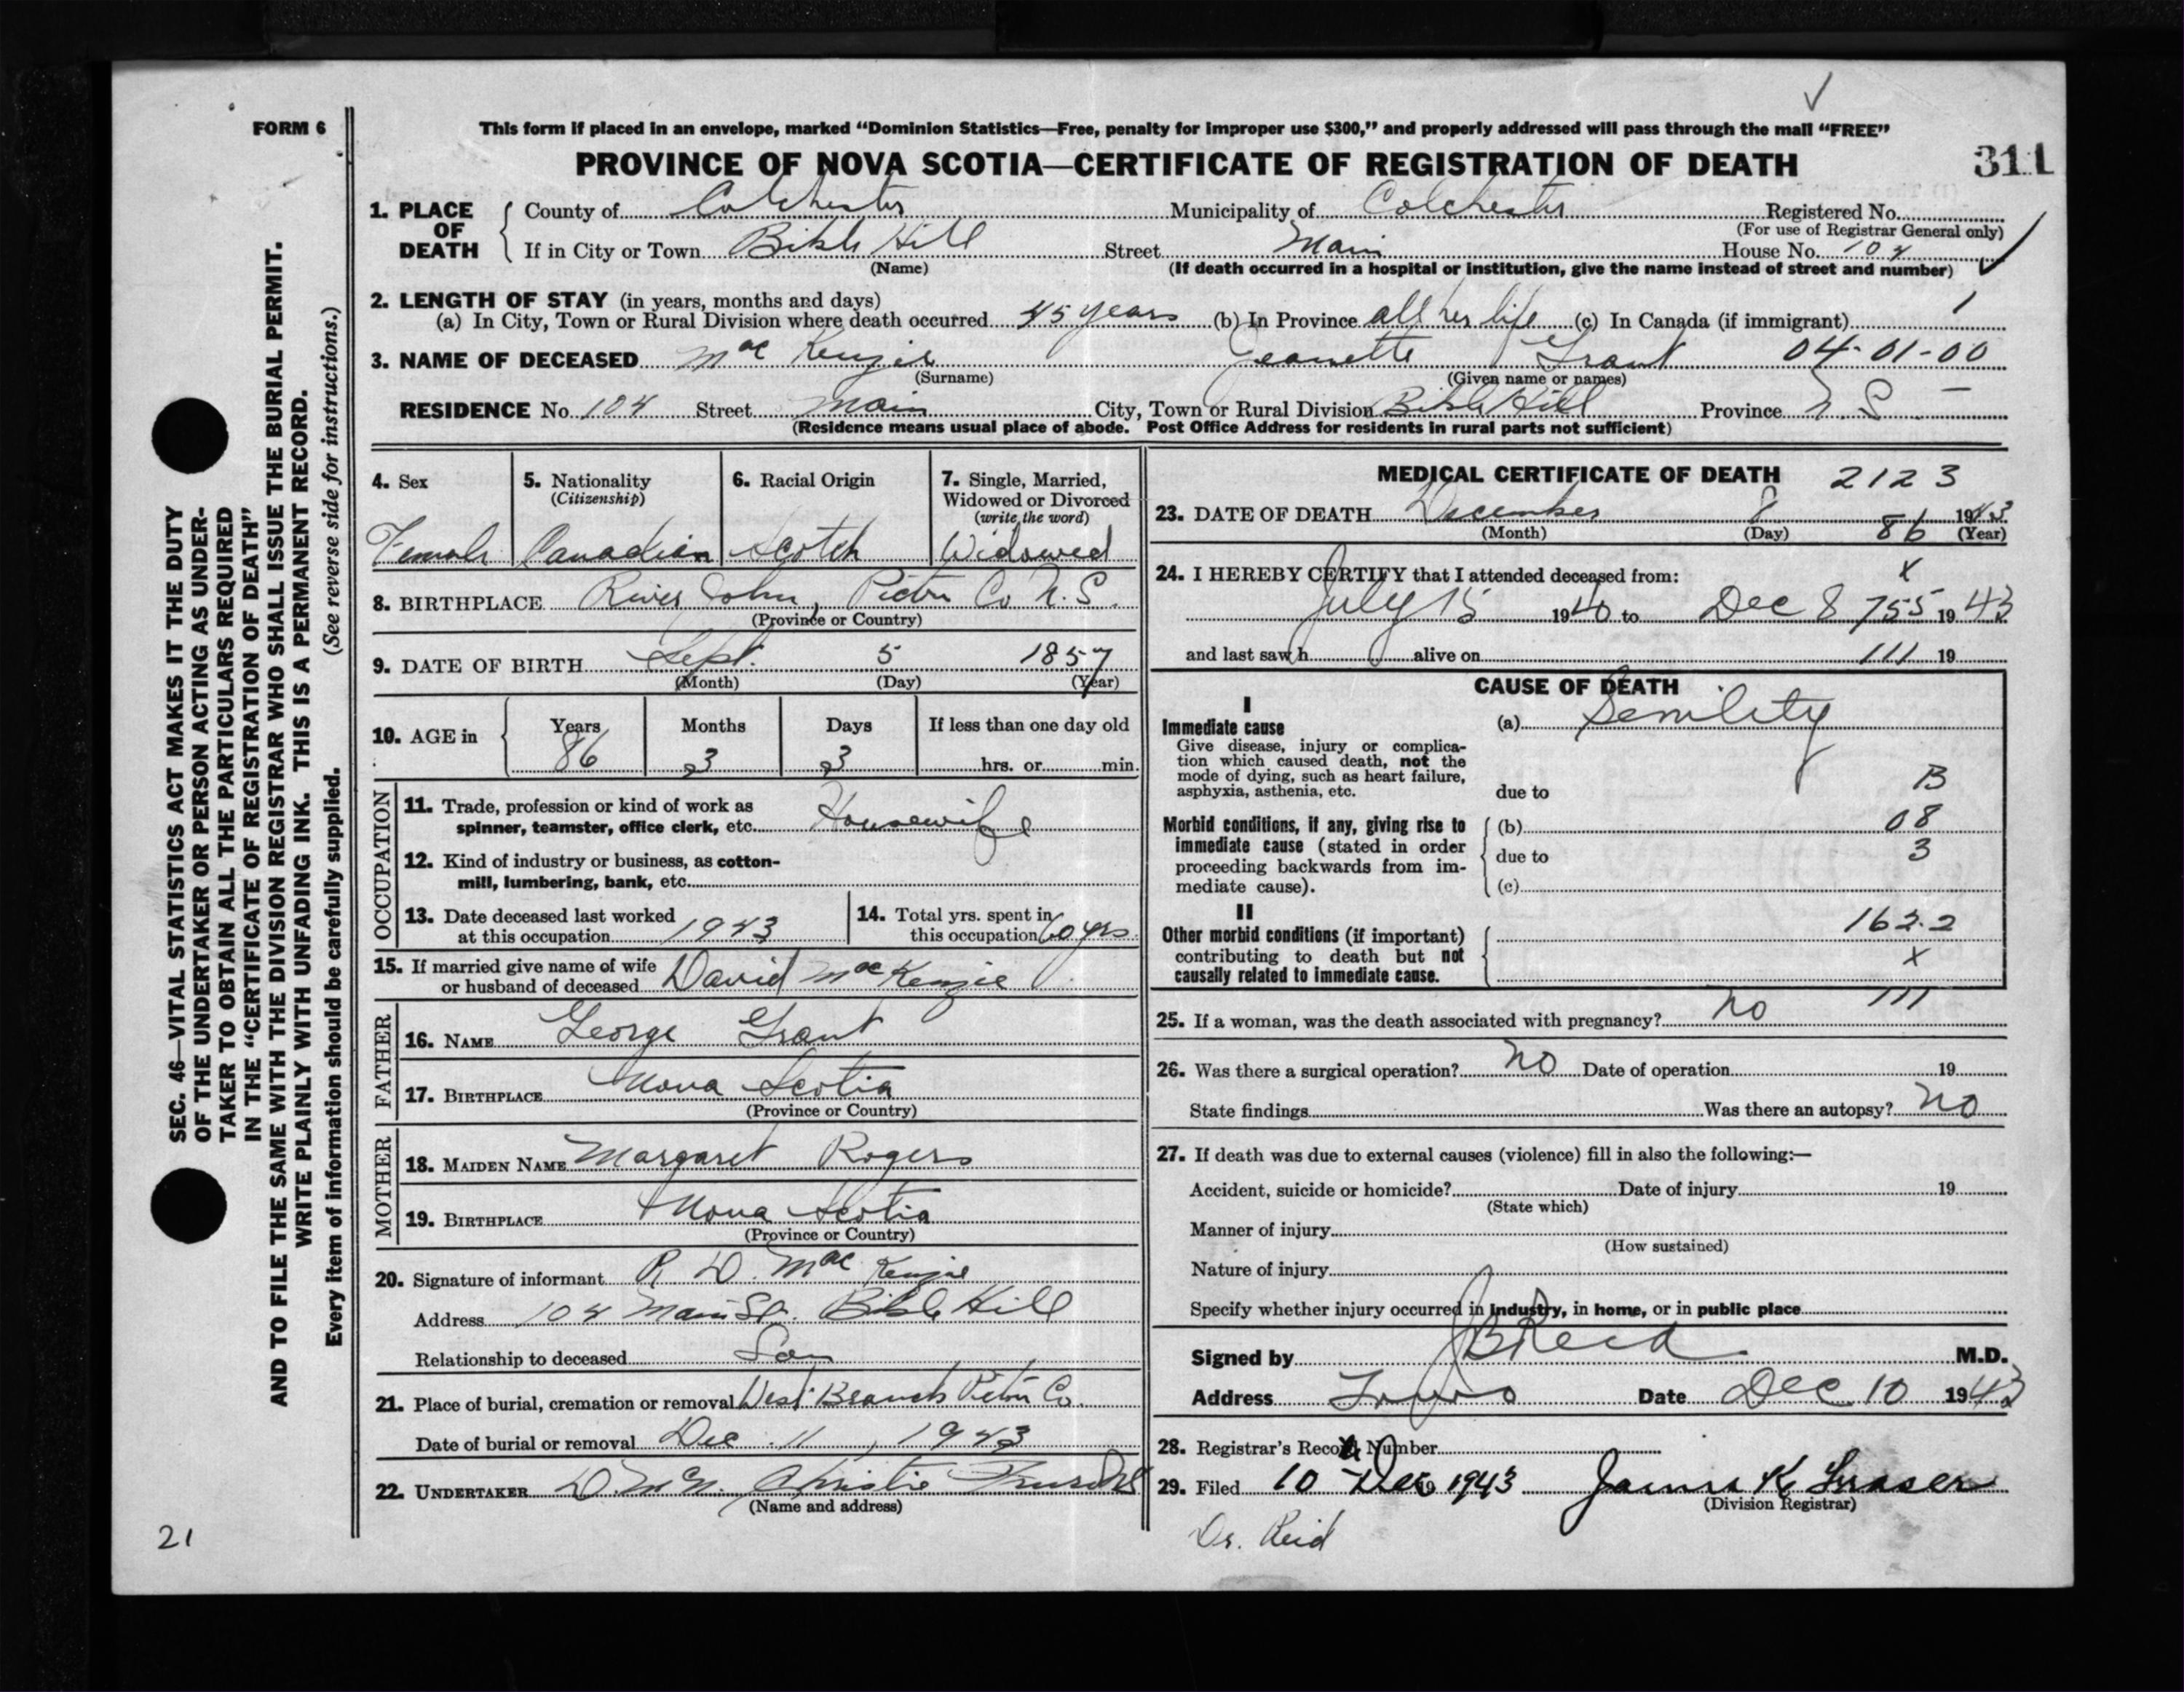 FORM 6
This form if placed in an envelope, marked “Dominion Statistics—Free, penalty for improper use $300,” and properly addressed will pass through the mail “FREE”
PROVINCE OF NOVA SCOTIA—CERTIFICATE OF REGISTRATION OF DEATH
311
1. PLACE OF DEATH
County of Colchester Municipality of Colchester Registered No.
(For use of Registrar General only)
If in City or Town Bible Hill Street Main House No. 104
(Name) (If death occurred in a hospital or institution, give the name instead of street and number)
2. LENGTH OF STAY (in years, months and days)
(a) In City, Town or Rural Division where death occurred 45 years (b) In Province all her life (c) In Canada (if immigrant)
3. NAME OF DECEASED MacKenzie Jeanette Grant 04-01-00
(Surname) (Given name or names)
RESIDENCE No. 104 Street Main City, Town or Rural Division Bible Hill Province N. S.
(Residence means usual place of abode. Post Office Address for residents in rural parts not sufficient)
4. Sex 5. Nationality 6. Racial Origin 7. Single, Married,
(Citizenship) Widowed or Divorced
(write the word)
Female Canadian Scotch Widowed
8. BIRTHPLACE River John, Pictou Co N.S.
(Province or Country)
9. DATE OF BIRTH Sept. 5 1857
(Month) (Day) (Year)
10. AGE in Years Months Days If less than one day old
86 3 3 hrs. or min.
OCCUPATION
11. Trade, profession or kind of work as
spinner, teamster, office clerk, etc. Housewife
12. Kind of industry or business, as cotton-
mill, lumbering, bank, etc.
13. Date deceased last worked
at this occupation 1943
14. Total yrs. spent in
this occupation 60 yrs.
15. If married give name of wife
or husband of deceased David MacKenzie
FATHER
16. NAME George Grant
17. BIRTHPLACE Nova Scotia
(Province or Country)
MOTHER
18. MAIDEN NAME Margaret Rogers
19. BIRTHPLACE Nova Scotia
(Province or Country)
20. Signature of informant R. D. MacKenzie
Address 104 Main St. Bible Hill
Relationship to deceased Son
21. Place of burial, cremation or removal West Branch Pictou Co.
Date of burial or removal Dec. 11, 1943
22. UNDERTAKER D. McN. Christie
(Name and address)
MEDICAL CERTIFICATE OF DEATH 2123
23. DATE OF DEATH December 8 1943
(Month) (Day) 86 (Year)
24. I HEREBY CERTIFY that I attended deceased from: X
July 15 1940 to Dec 8 755 1943
and last saw h alive on 111 19
CAUSE OF DEATH
I
Immediate cause (a) Senility
Give disease, injury or complica-
tion which caused death, not the
mode of dying, such as heart failure,
asphyxia, asthenia, etc. due to B
Morbid conditions, if any, giving rise to (b) 08
immediate cause (stated in order due to 3
proceeding backwards from im-
mediate cause). (c)
II
162.2
Other morbid conditions (if important)
contributing to death but not X
causally related to immediate cause.
25. If a woman, was the death associated with pregnancy? No 111
26. Was there a surgical operation? No Date of operation 19
State findings Was there an autopsy? No
27. If death was due to external causes (violence) fill in also the following:—
Accident, suicide or homicide? Date of injury 19
(State which)
Manner of injury
(How sustained)
Nature of injury
Specify whether injury occurred in industry, in home, or in public place
Signed by JB Reid M.D.
Address Truro Date Dec 10 1943
28. Registrar's Record Number
29. Filed 10 Dec 19 1943 James K Fraser
(Division Registrar)
Dr. Reid
21
SEC. 46—VITAL STATISTICS ACT MAKES IT THE DUTY
OF THE UNDERTAKER OR PERSON ACTING AS UNDER-
TAKER TO OBTAIN ALL THE PARTICULARS REQUIRED
IN THE “CERTIFICATE OF REGISTRATION OF DEATH”
AND TO FILE THE SAME WITH THE DIVISION REGISTRAR WHO SHALL ISSUE THE BURIAL PERMIT.
WRITE PLAINLY WITH UNFADING INK. THIS IS A PERMANENT RECORD.
Every item of information should be carefully supplied. (See reverse side for instructions.)